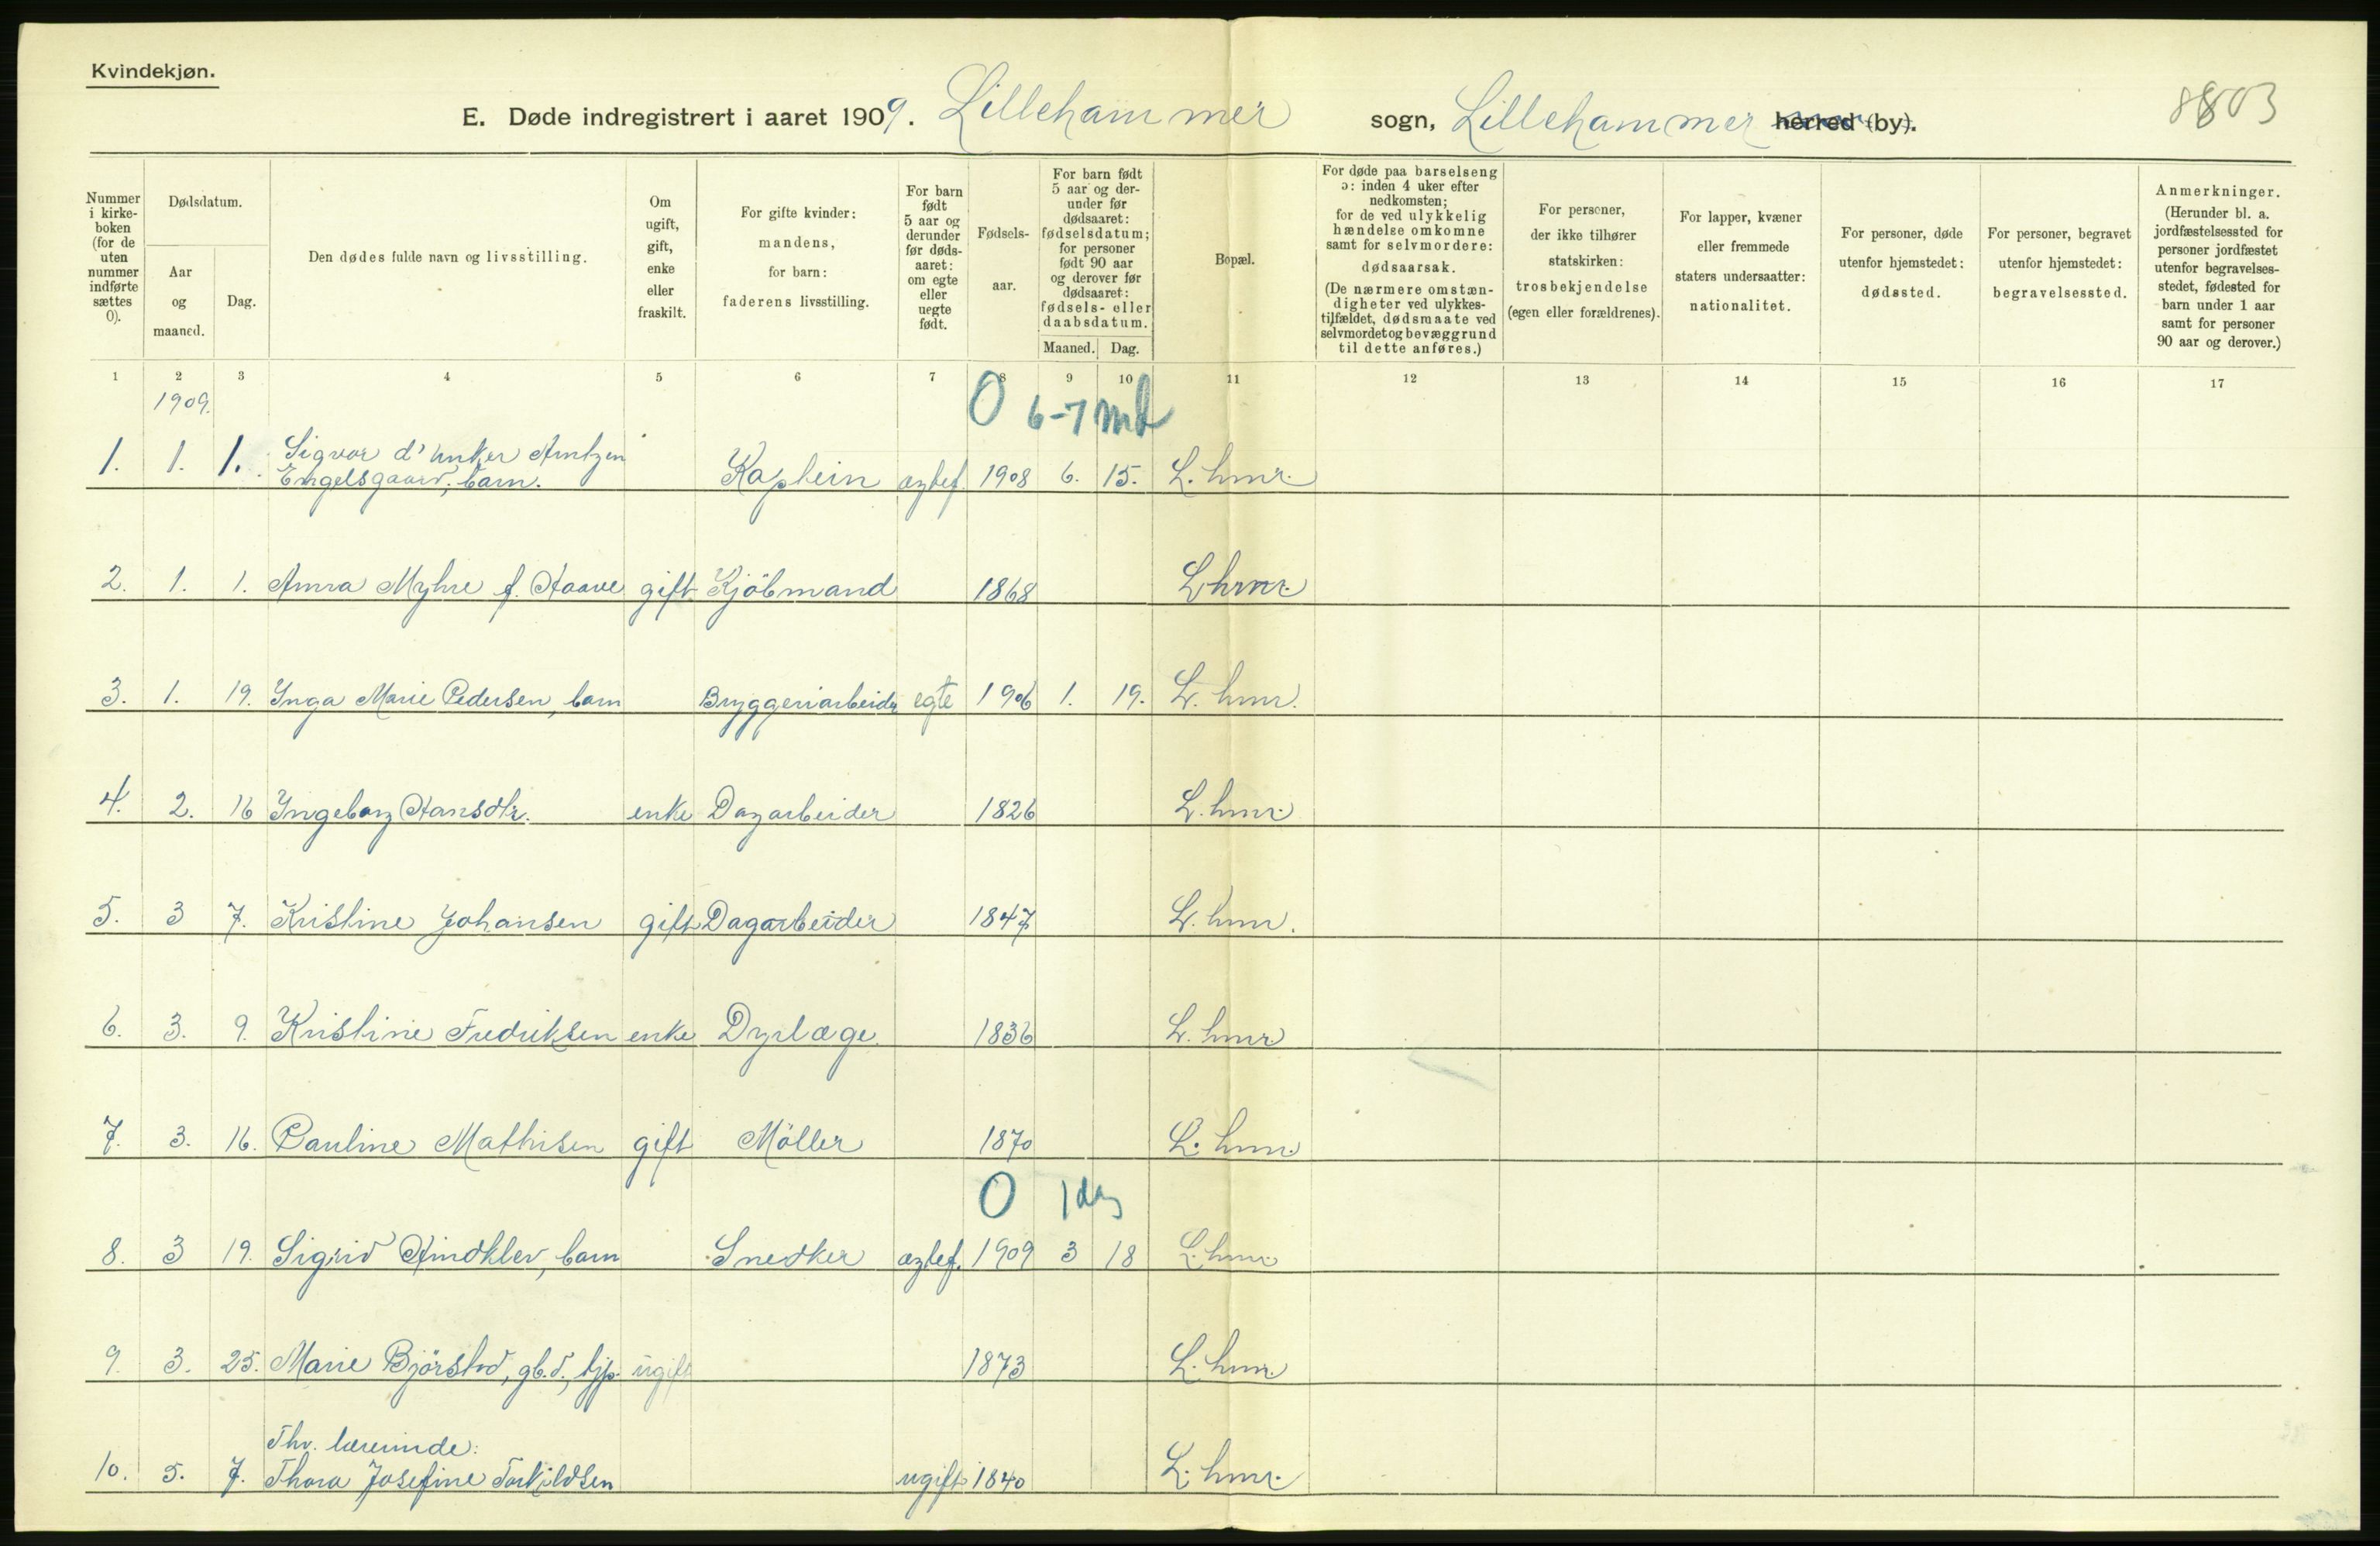 Kvindekjøn.
E. Døde indregistrert i aaret 1909. Lillehammer sogn, Lillehammer herred (by).
8803
Nummer i kirkeboken (for de uten nummer indførte sættes 0).
Dødsdatum.
Aar og maaned.
Dag.
Den dødes fulde navn og livsstilling.
Om ugift, gift, enke eller fraskilt.
For gifte kvinder: mandens, for barn: faderens livsstilling.
For barn født 5 aar og derunder før dødsaaret: om egte eller uegte født.
Fødselsaar.
For barn født 5 aar og derunder før dødsaaret: fødselsdatum; for personer født 90 aar og derover før dødsaaret: fødsels- eller daabsdatum.
Maaned. Dag.
Bopæl.
For døde paa barselseng ɔ: inden 4 uker efter nedkomsten; for de ved ulykkelig hændelse omkomne samt for selvmordere: dødsaarsak. (De nærmere omstændigheter ved ulykkestilfældet, dødsmaate ved selvmordet og bevæggrund til dette anføres.)
For personer, der ikke tilhører statskirken: trosbekjendelse (egen eller forældrenes).
For lapper, kvæner eller fremmede staters undersaatter: nationalitet.
For personer, døde utenfor hjemstedet: dødssted.
For personer, begravet utenfor hjemstedet: begravelsessted.
Anmerkninger. (Herunder bl. a. jordfæstelsessted for personer jordfæstet utenfor begravelsesstedet, fødested for barn under 1 aar samt for personer 90 aar og derover.)
1 2 3 4 5 6 7 8 9 10 11 12 13 14 15 16 17
1909.
0 6-7 md
Sigvor d'Unker Arntzen
1. 1. 1. Engelsgaard, barn. Kaptein ægtef. 1908 6. 15. L.hmr.
2. 1. 1. Anna Myhre f. Haave gift Kjöbmand 1868 Lhmr.
3. 1. 19. Inga Marie Pedersen, barn Bryggeriarbeider egte 1906 1. 19. L.hmr.
4. 2. 16 Ingeborg Hansdtr. enke Dagarbeider 1826 L.hmr.
5. 3 7. Kristine Johansen gift Dagarbeider 1847 L.hmr.
6. 3. 9. Kristine Fredriksen enke Dyrlæge 1836 L.hmr
7. 3. 16. Pauline Mathisen gift Möller 1870 L.hmr.
0 1 dag
8. 3 19. Sigrid Hindklev, barn Snedker ægtef. 1909 3 18 L.hmr.
9. 3. 25. Marie Björstad, gb.d., tjp. ugift 1873 L.hmr.
Fhv. lærerinde:
10. 5. 7. Thora Josefine Torkildsen ugift 1840 L.hmr.